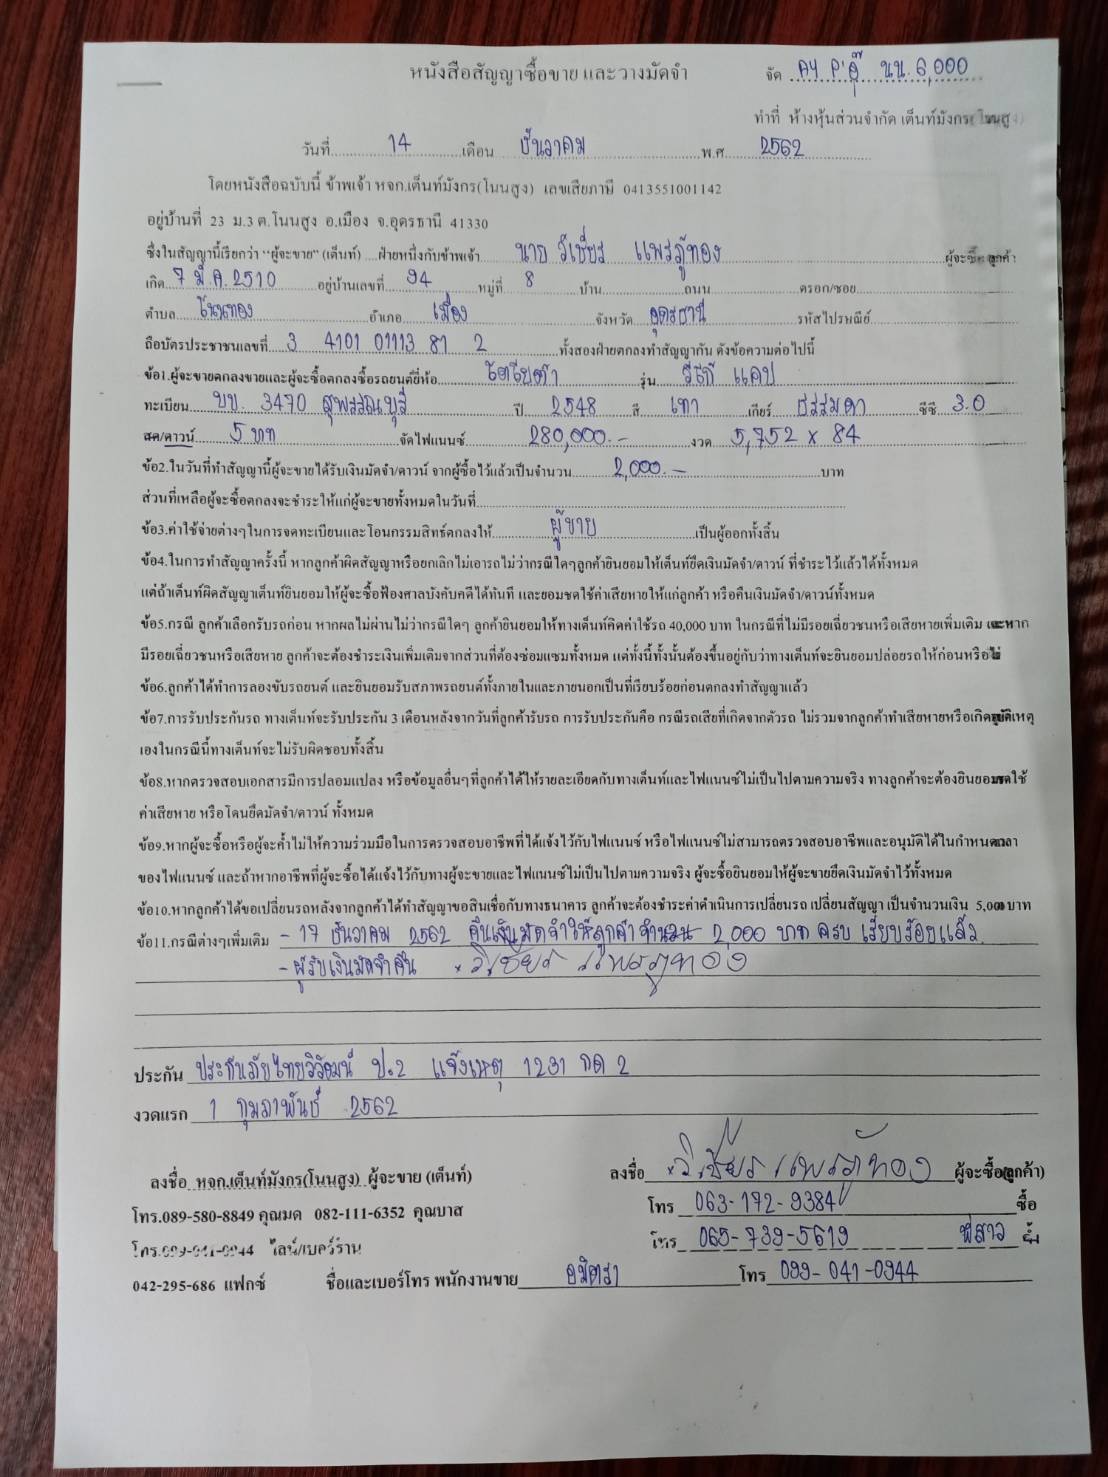 หนังสือสัญญาซื้อขาย และวางมัดจำ จัด AY P'อุ๊ นน. 6,000
ทำที่ ห้างหุ้นส่วนจำกัด เต็นท์มังกร(โนนสูง)
วันที่ 14 เดือน ธันวาคม พ.ศ 2562
โดยหนังสือฉบับนี้ ข้าพเจ้า หจก.เต็นท์มังกร(โนนสูง) เลขเสียภาษี 0413551001142
อยู่บ้านที่ 23 ม.3 ต.โนนสูง อ.เมือง จ.อุดรธานี 41330
ซึ่งในสัญญานี้เรียกว่า "ผู้จะขาย" (เต็นท์) ฝ่ายหนึ่งกับข้าพเจ้า นาย วิเชียร แพรภู่ทอง ผู้จะซื้อ ลูกค้า
เกิด 7 มี.ค. 2510 อยู่บ้านเลขที่ 94 หมู่ที่ 8 บ้าน ถนน ตรอก/ซอย
ตำบล อำเภอ เมือง จังหวัด อุดรธานี รหัสไปรษณีย์
ถือบัตรประชาชนเลขที่ 3 4101 01113 81 2 ทั้งสองฝ่ายตกลงทำสัญญากัน ดังข้อความต่อไปนี้
ข้อ1.ผู้จะขายตกลงขายและผู้จะซื้อตกลงซื้อรถยนต์ยี่ห้อ โตโยต้า รุ่น วีโก้ แคป
ทะเบียน บบ. 3470 สุพรรณบุรี ปี 2548 สี เทา เกียร์ ธรรมดา ซีซี 3.0
สด/ดาวน์ 5 บาท จัดไฟแนนซ์ 280,000.- งวด 5,752 x 84
ข้อ2.ในวันที่ทำสัญญานี้ผู้จะขายได้รับเงินมัดจำ/ดาวน์ จากผู้ซื้อไว้แล้วเป็นจำนวน 2,000.- บาท
ส่วนที่เหลือผู้จะซื้อตกลงจะชำระให้แก่ผู้จะขายทั้งหมดในวันที่
ข้อ3.ค่าใช้จ่ายต่างๆในการจดทะเบียนและโอนกรรมสิทธ์ตกลงให้ ผู้ขาย เป็นผู้ออกทั้งสิ้น
ข้อ4.ในการทำสัญญาครั้งนี้ หากลูกค้าผิดสัญญาหรือยกเลิกไม่เอารถไม่ว่ากรณีใดๆลูกค้ายินยอมให้เต็นท์ยึดเงินมัดจำ/ดาวน์ ที่ชำระไว้แล้วได้ทั้งหมด
แต่ถ้าเต็นท์ผิดสัญญาเต็นท์ยินยอมให้ผู้จะซื้อฟ้องศาลบังคับคดีได้ทันที และยอมชดใช้ค่าเสียหายให้แก่ลูกค้า หรือคืนเงินมัดจำ/ดาวน์ทั้งหมด
ข้อ5.กรณี ลูกค้าเลือกรับรถก่อน หากผลไม่ผ่านไม่ว่ากรณีใดๆ ลูกค้ายินยอมให้ทางเต็นท์คิดค่าใช้รถ 40,000 บาท ในกรณีที่ไม่มีรอยเฉี่ยวชนหรือเสียหายเพิ่มเติม และหาก
มีรอยเฉี่ยวชนหรือเสียหาย ลูกค้าจะต้องชำระเงินเพิ่มเติมจากส่วนที่ต้องซ่อมแซมทั้งหมด แต่ทั้งนี้ทั้งนั้นต้องขึ้นอยู่กับว่าทางเต็นท์จะยินยอมปล่อยรถให้ก่อนหรือไม่
ข้อ6.ลูกค้าได้ทำการลองขับรถยนต์ และยินยอมรับสภาพรถยนต์ทั้งภายในและภายนอกเป็นที่เรียบร้อยก่อนตกลงทำสัญญาแล้ว
ข้อ7.การรับประกันรถ ทางเต็นท์จะรับประกัน 3 เดือนหลังจากวันที่ลูกค้ารับรถ การรับประกันคือ กรณีรถเสียที่เกิดจากตัวรถ ไม่รวมจากลูกค้าทำเสียหายหรือเกิดอุบัติเหตุ
เองในกรณีนี้ทางเต็นท์จะไม่รับผิดชอบทั้งสิ้น
ข้อ8.หากตรวจสอบเอกสารมีการปลอมแปลง หรือข้อมูลอื่นๆที่ลูกค้าได้ให้รายละเอียดกับทางเต็นท์และไฟแนนซ์ไม่เป็นไปตามความจริง ทางลูกค้าจะต้องยินยอมชดใช้
ค่าเสียหาย หรือโดนยึดมัดจำ/ดาวน์ ทั้งหมด
ข้อ9.หากผู้จะซื้อหรือผู้จะค้ำไม่ให้ความร่วมมือในการตรวจสอบอาชีพที่ได้แจ้งไว้กับไฟแนนซ์ หรือไฟแนนซ์ไม่สามารถตรวจสอบอาชีพและอนุมัติได้ในกำหนดเวลา
ของไฟแนนซ์ และถ้าหากอาชีพที่ผู้จะซื้อได้แจ้งไว้กับทางผู้จะขายและไฟแนนซ์ไม่เป็นไปตามความจริง ผู้จะซื้อยินยอมให้ผู้จะขายยึดเงินมัดจำไว้ทั้งหมด
ข้อ10.หากลูกค้าได้ขอเปลี่ยนรถหลังจากลูกค้าได้ทำสัญญาขอสินเชื่อกับทางธนาคาร ลูกค้าจะต้องชำระค่าดำเนินการเปลี่ยนรถ เปลี่ยนสัญญา เป็นจำนวนเงิน 5,000 บาท
ข้อ11.กรณีต่างๆเพิ่มเติม - 17 ธันวาคม 2562 คืนเงินมัดจำให้ลูกค้า จำนวน 2,000 บาท ครบ เรียบร้อยแล้ว
- ผู้รับเงินมัดจำคืน x วิเชียร แพรภู่ทอง
ประกัน ประกันภัยไทยวิวัฒน์ ป.2 แจ้งเหตุ 1231 กด 2
งวดแรก 1 กุมภาพันธ์ 2562
ลงชื่อ หจก.เต็นท์มังกร(โนนสูง) ผู้จะขาย (เต็นท์) ลงชื่อ x วิเชียร แพรภู่ทอง ผู้จะซื้อ(ลูกค้า)
โทร.089-580-8849 คุณมด 082-111-6352 คุณบาส โทร 063-172-9384 ซื้อ
โทร.099-041-0944 ไลน์/เบอร์ร้าน โทร 065-739-5619 พี่สาว
042-295-686 แฟกซ์ ชื่อและเบอร์โทร พนักงานขาย อมิตรา โทร 099-041-0944